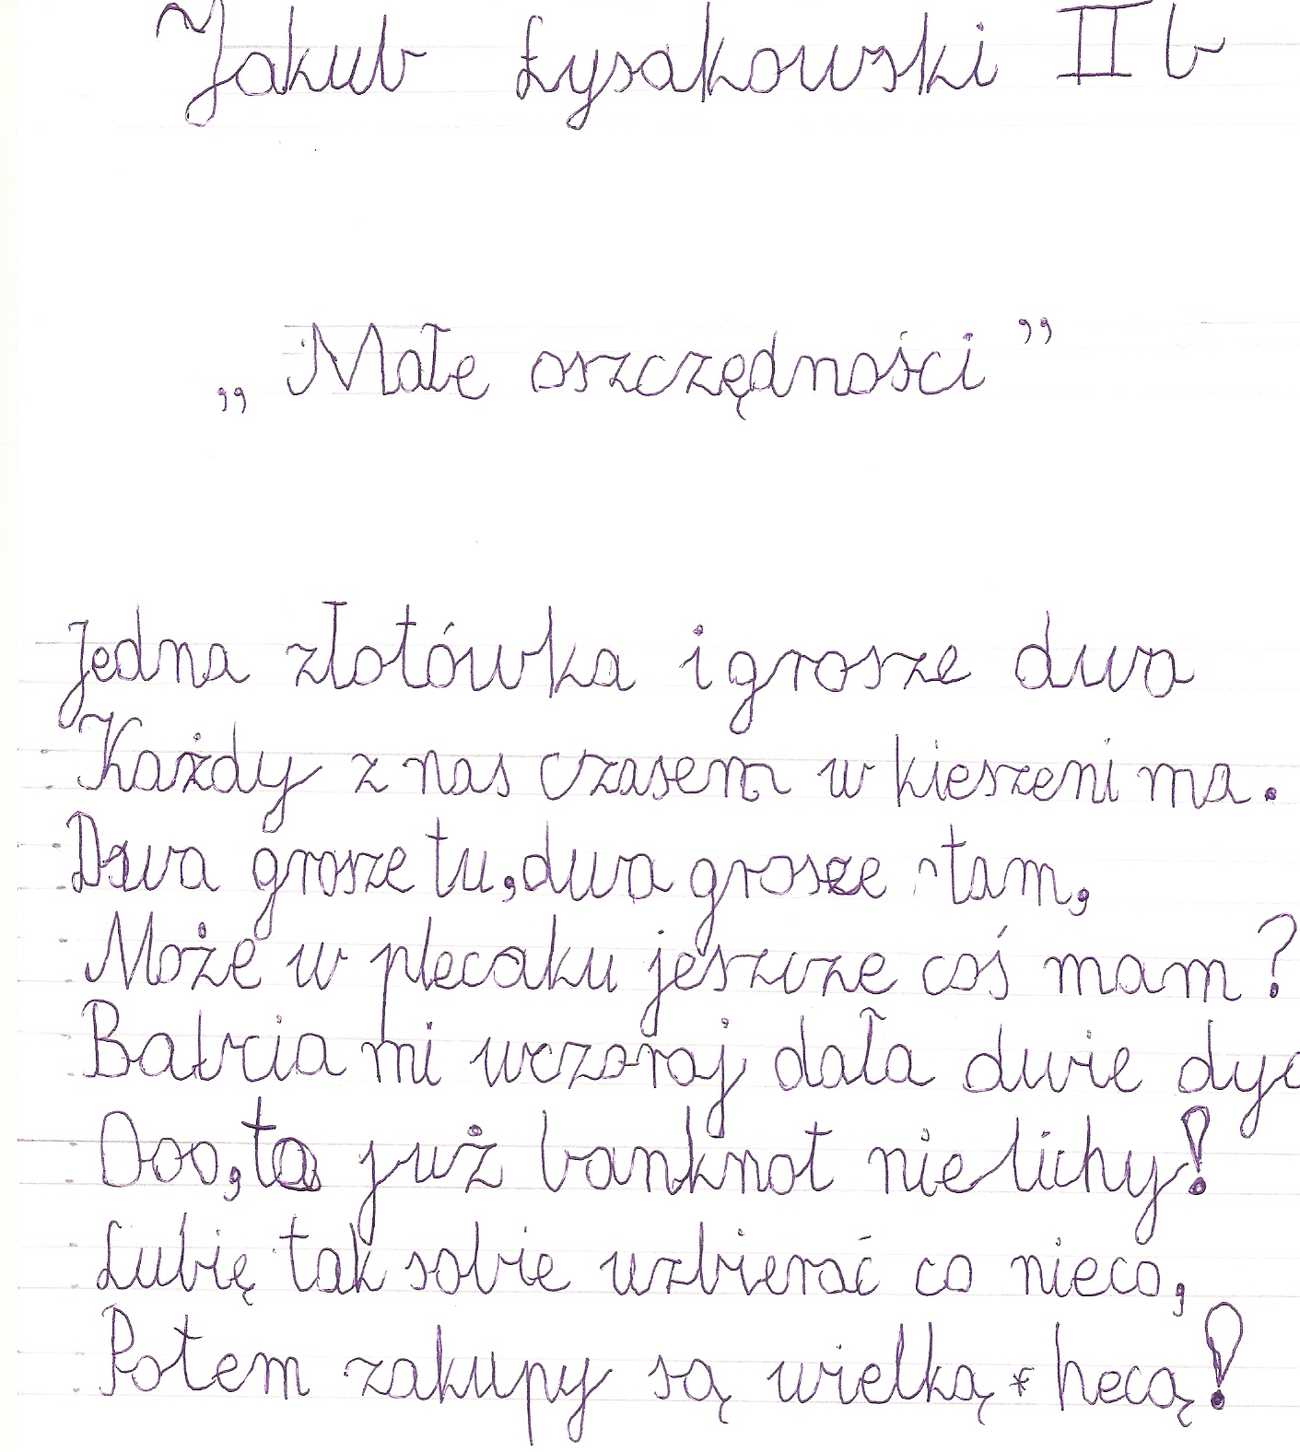 Jakub Łysakowski II b
„Małe oszczędności”
Jedna złotówka i grosze dwa
Każdy z nas czasem w kieszeni ma.
Dwa grosze tu, dwa grosze tam,
Może w plecaku jeszcze coś mam?
Babcia mi wczoraj dała dwie
Ooo, to już banknot nielichy!
Lubię tak sobie uzbierać co nieco,
Potem zakupy są wielką hecą!